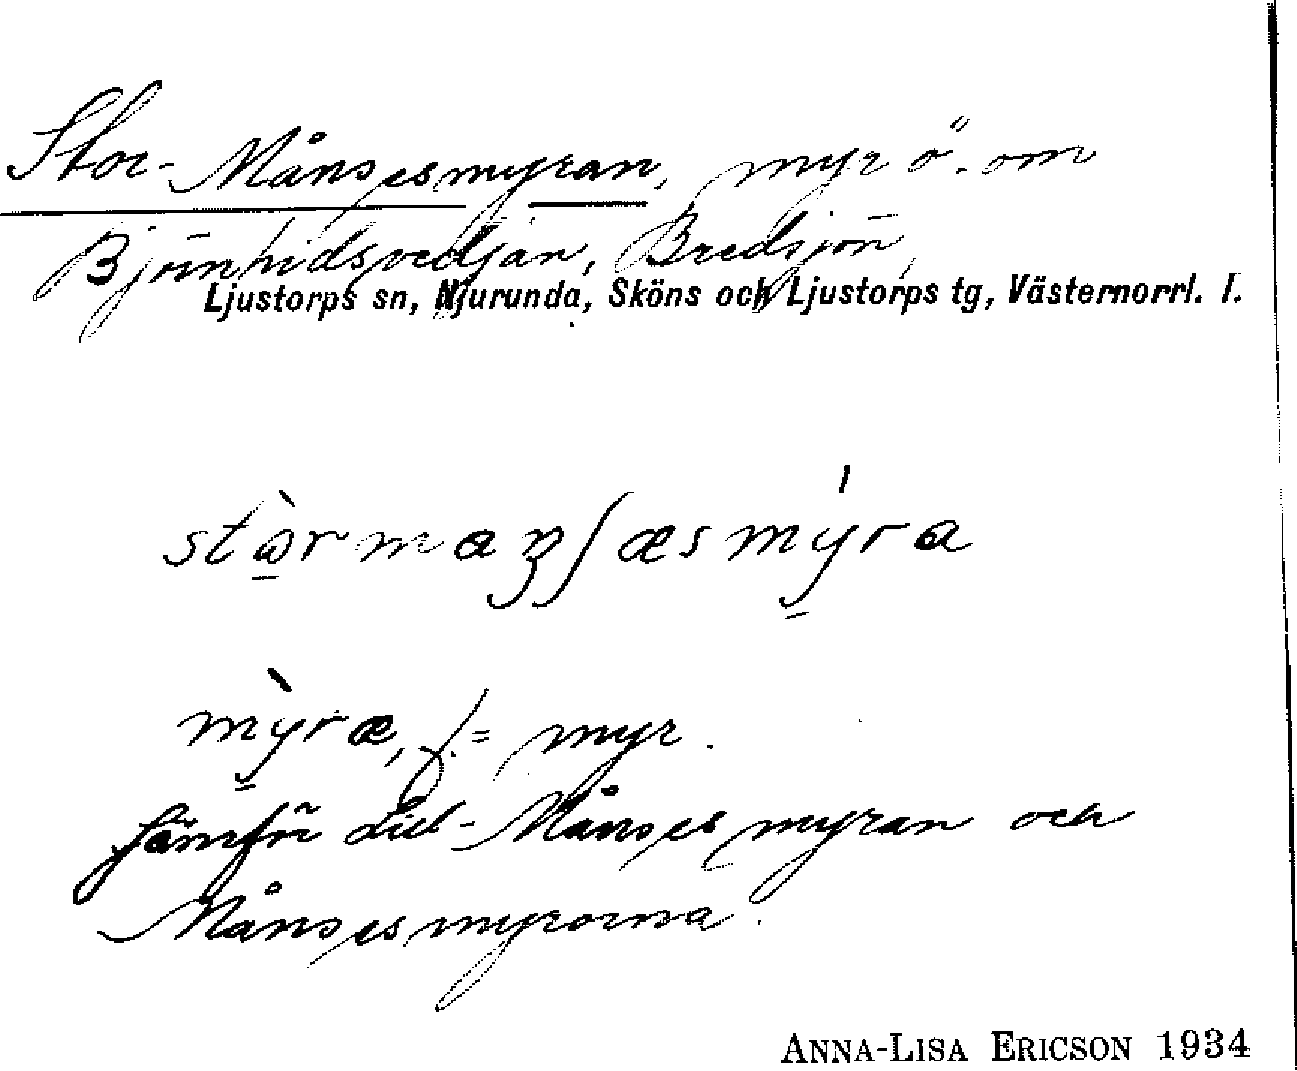 Stor-Månsesmyran, myr ö. om
Björnhidsvedjan, Bredsjön,
Ljustorps sn, Njurunda, Sköns och Ljustorps tg, Västernorrl. l.
mỳræ, f. = myr.
Jämför Lill-Månsesmyran och
Månsesmyrorna.
ANNA-LISA ERICSON 1934